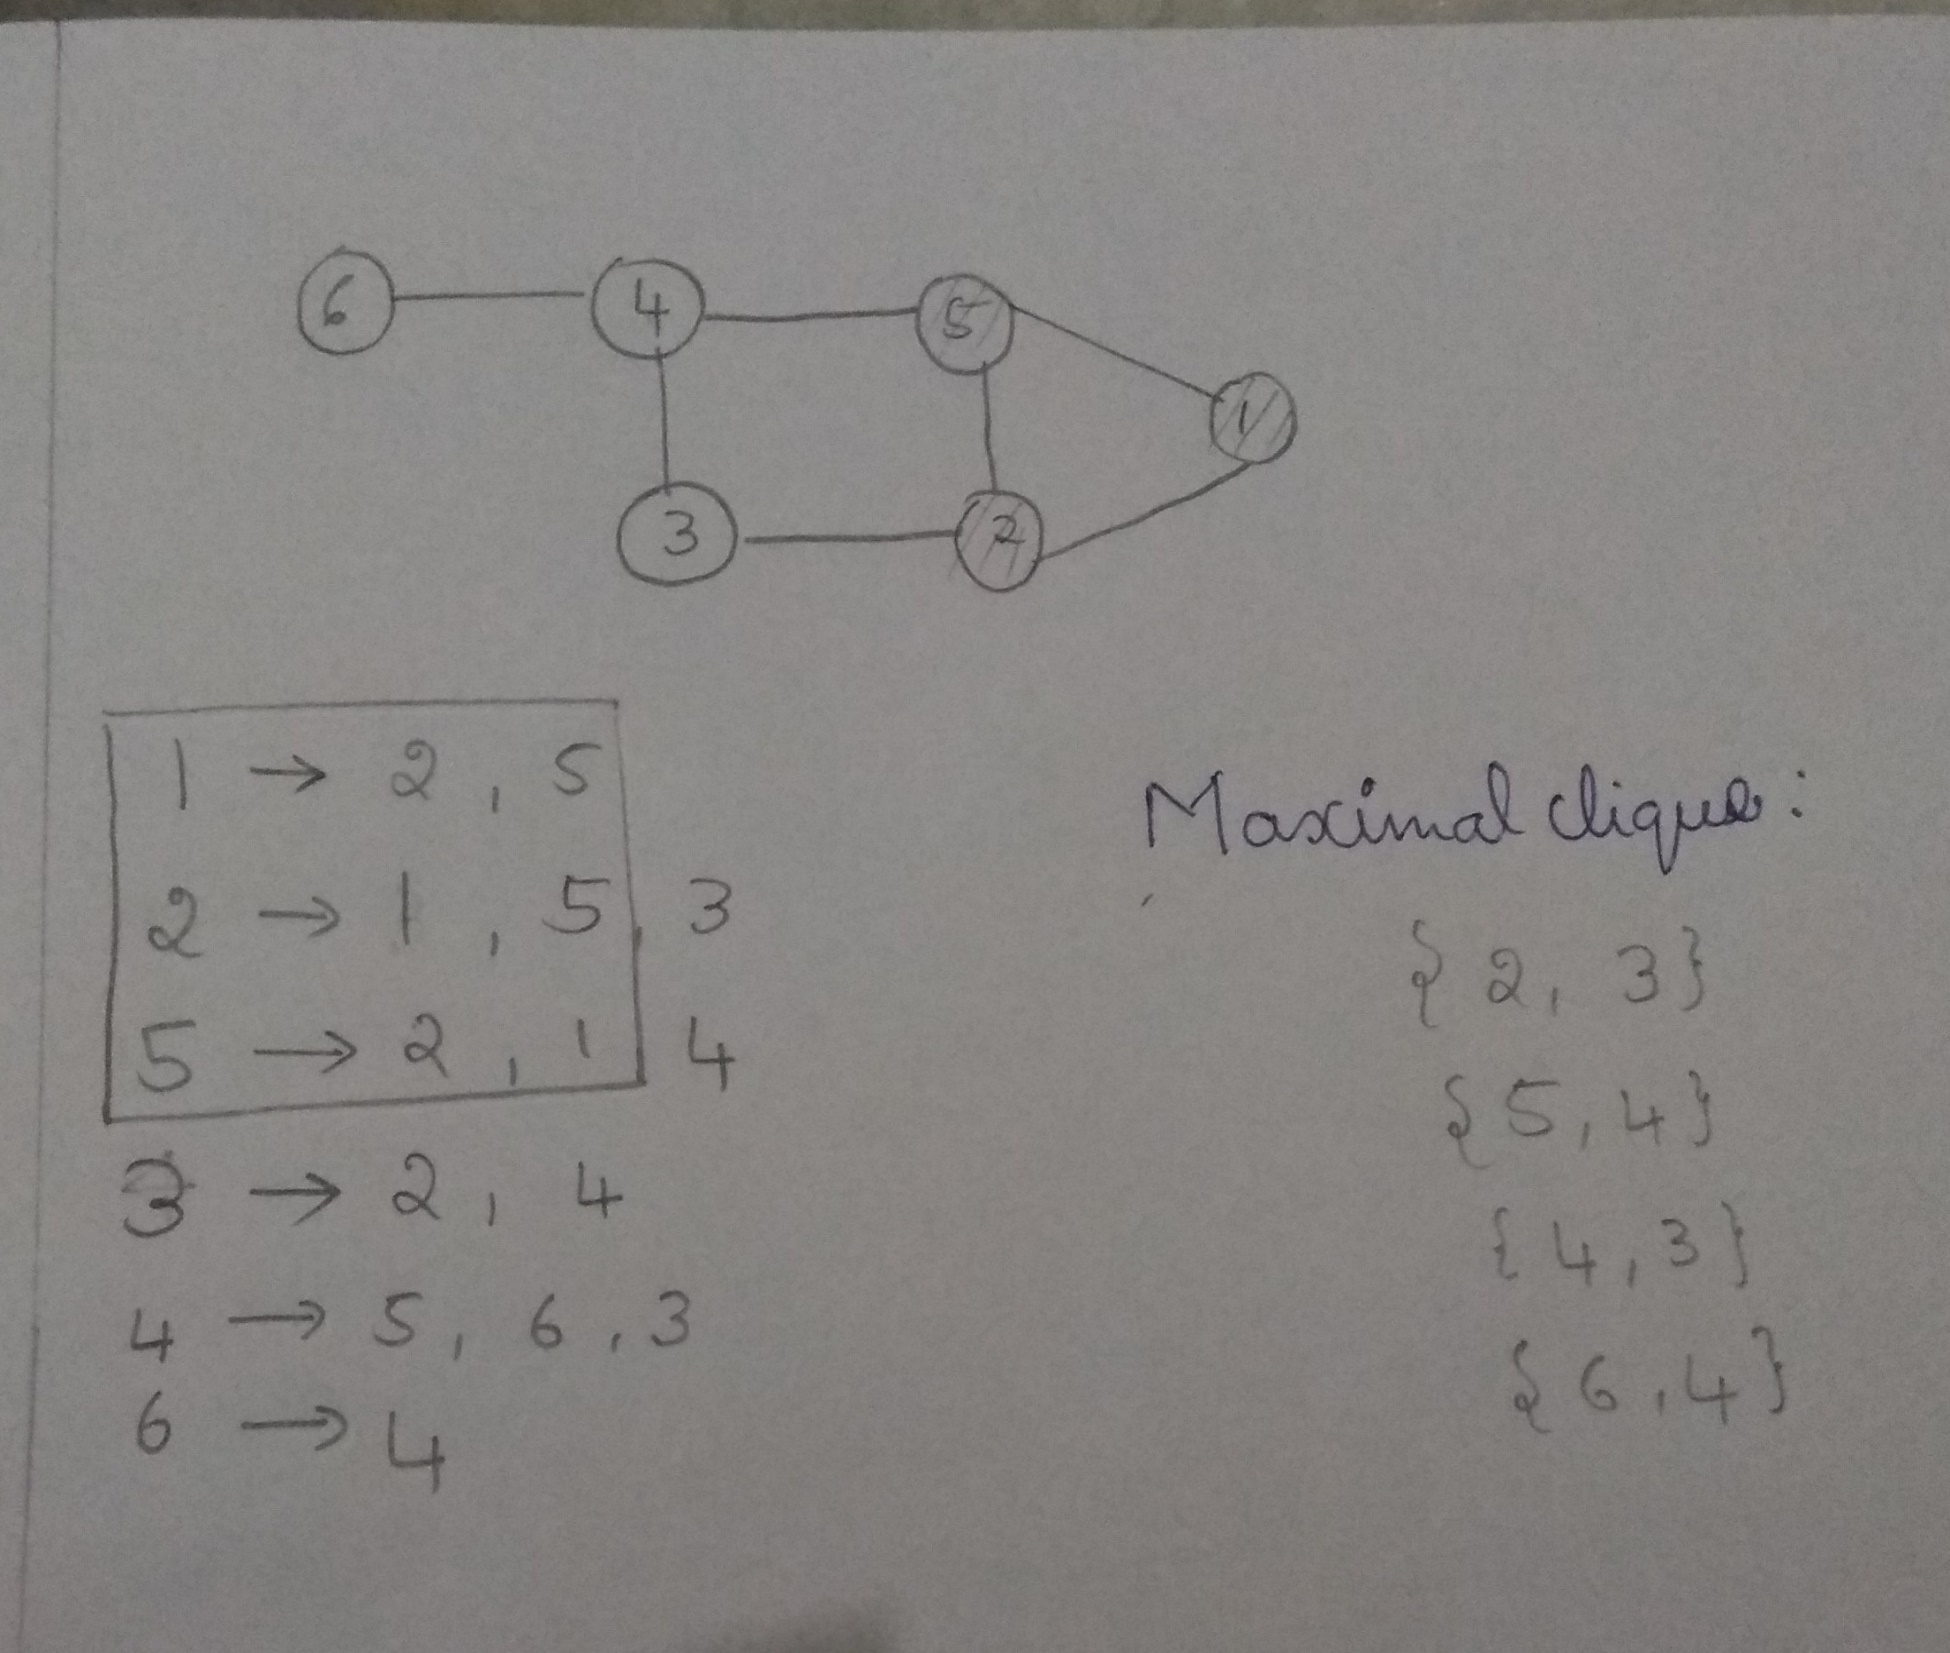 6 4 5
1
3 2
1 → 2, 5
2 → 1, 5, 3
5 → 2, 1 4
3 → 2, 4
4 → 5, 6, 3
6 → 4
Maximal clique:
{2, 3}
{5, 4}
{4, 3}
{6, 4}